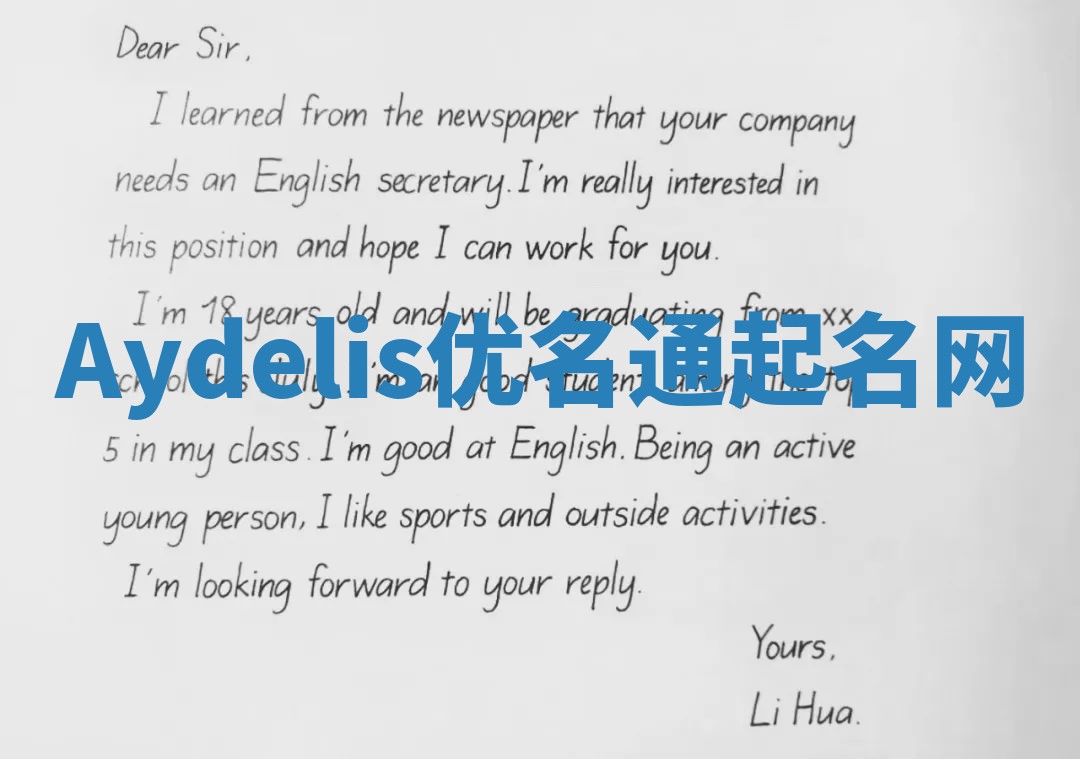 Dear Sir,
I learned from the newspaper that your company
needs an English secretary. I'm really interested in
this position and hope I can work for you.
I'm 18 years old and will be graduating from xx
Aydelis优名通起名网
school this July. I'm a good student among the top
5 in my class. I'm good at English. Being an active
young person, I like sports and outside activities.
I'm looking forward to your reply.
Yours,
Li Hua.